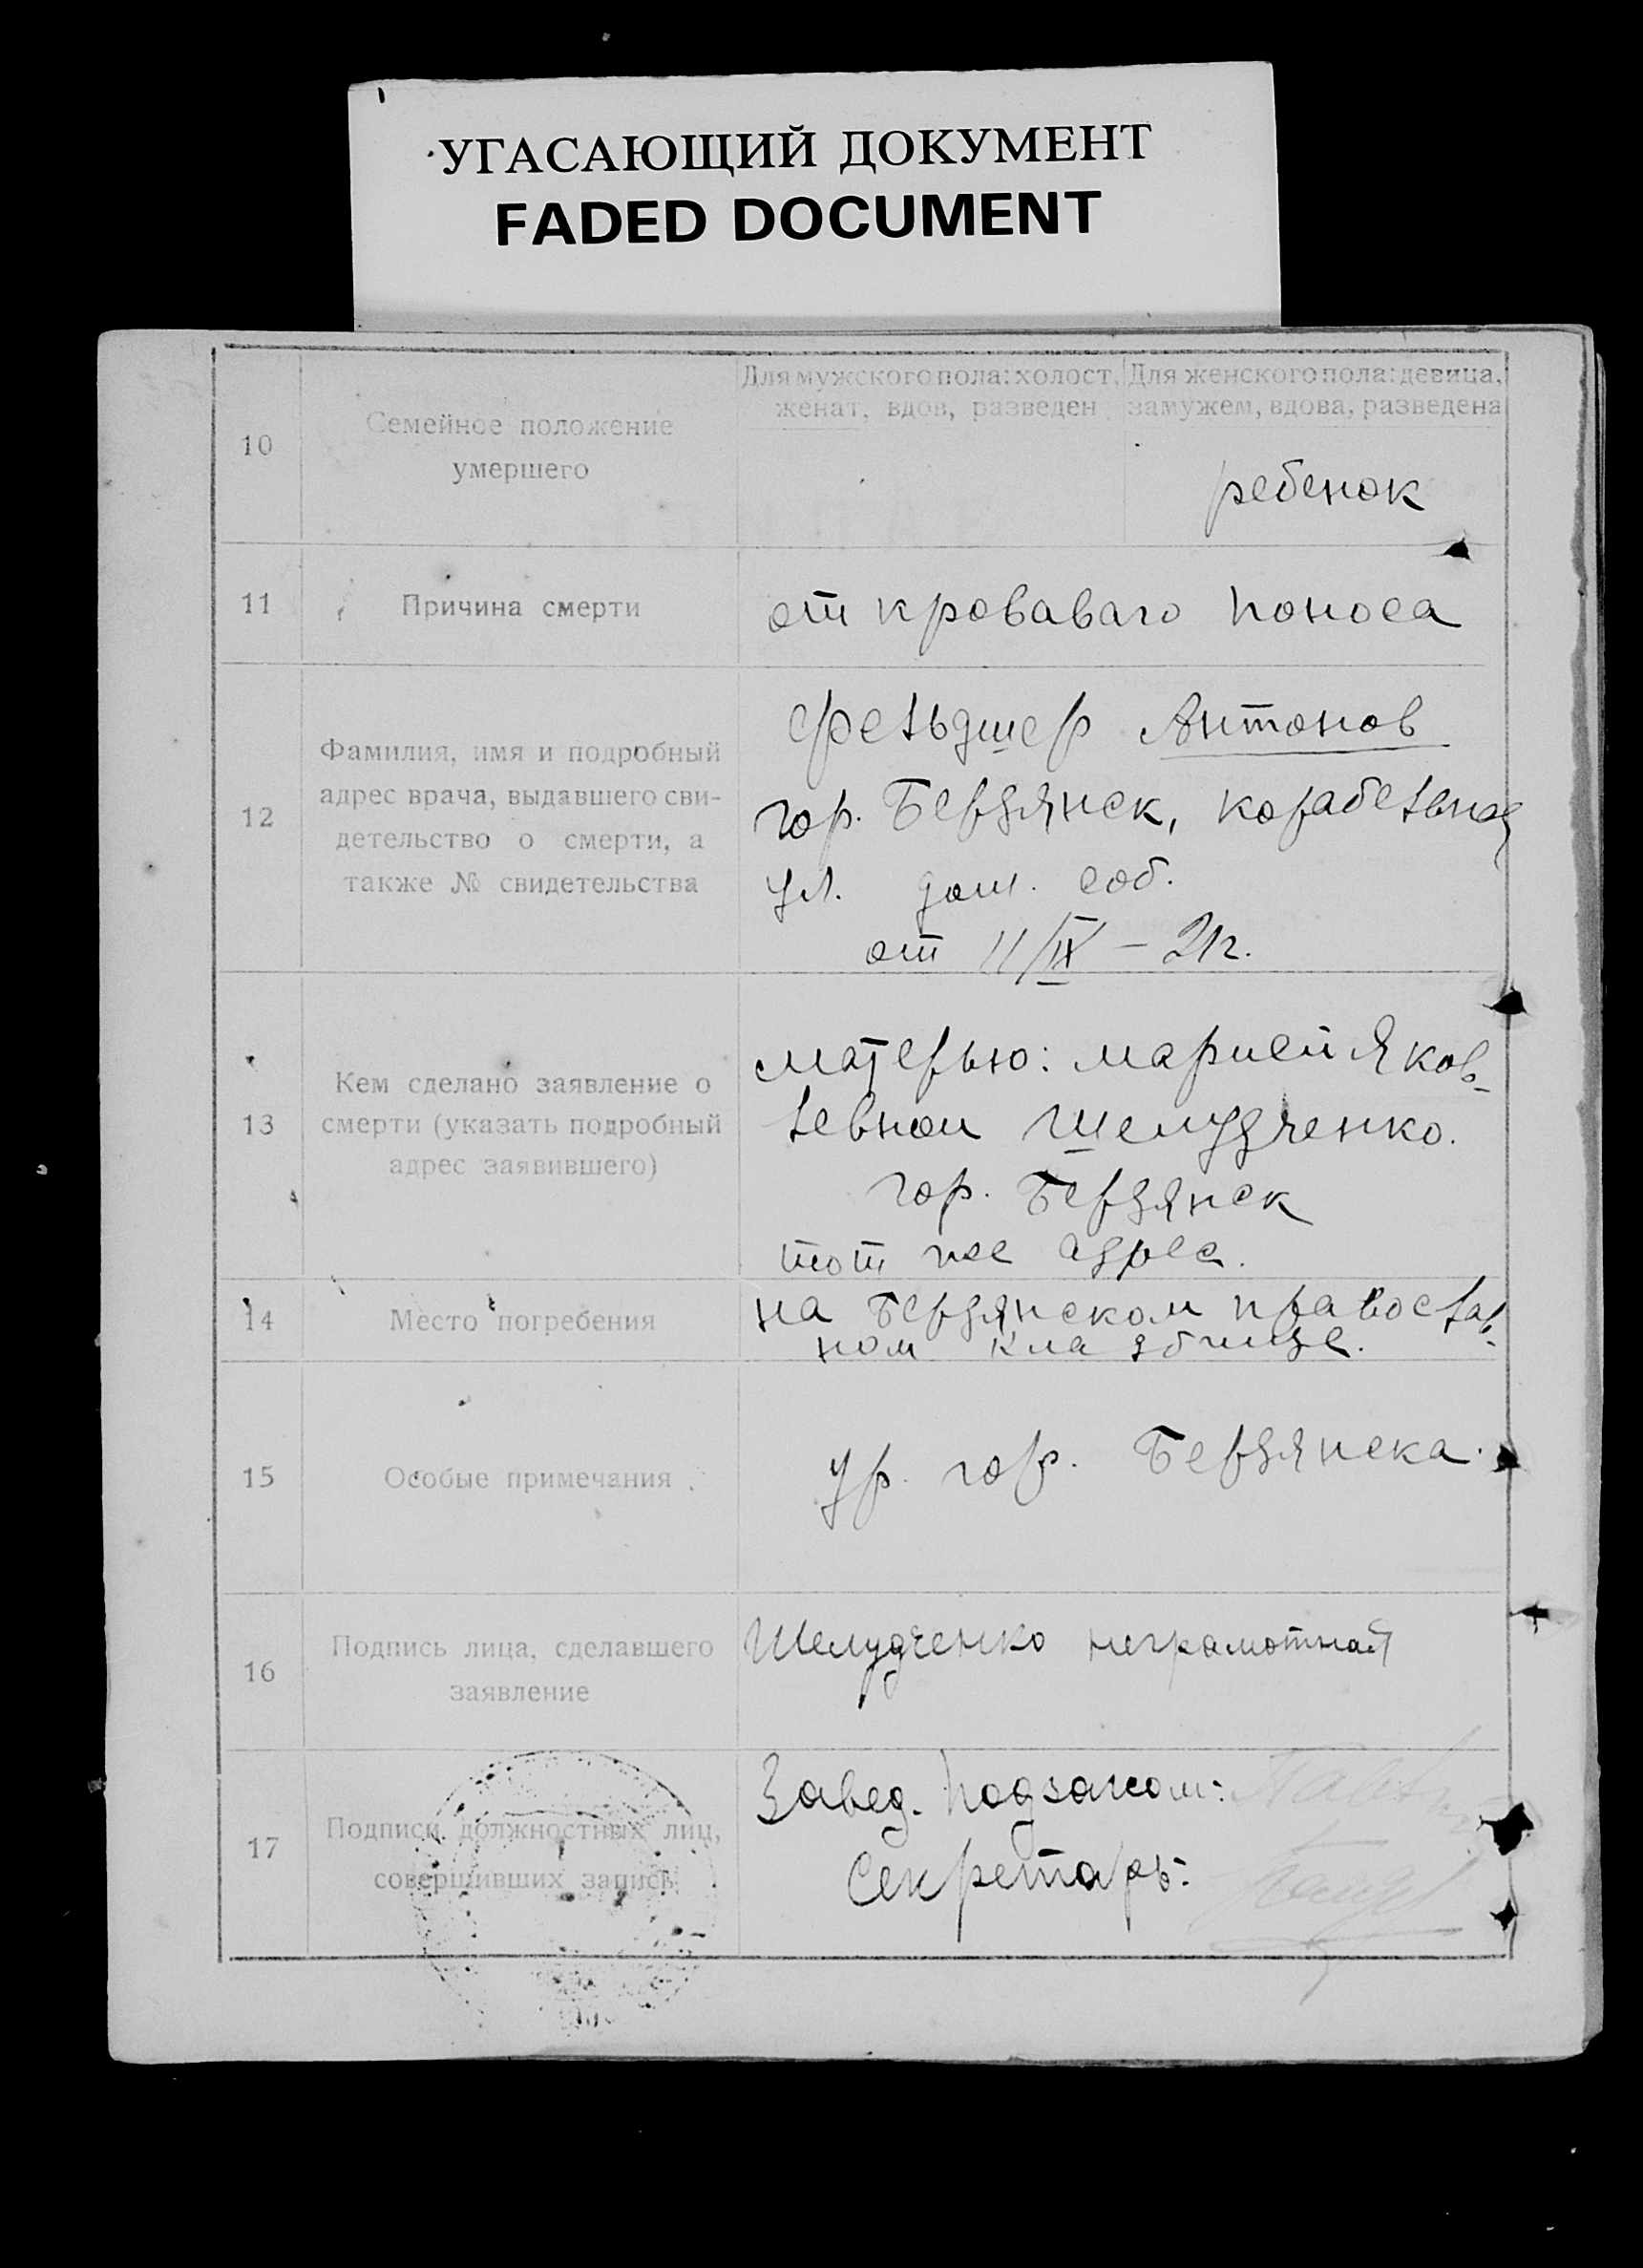 УГАСАЮЩИЙ ДОКУМЕНТ
FADED DOCUMENT
Для мужского пола: холост, женат, вдов, разведен
Для женского пола: девица, замужем, вдова, разведена
10
Семейное положение
умершего
ребенок
11
Причина смерти
от кроваваго поноса
12
Фамилия, имя и подробный
адрес врача, выдавшего сви-
детельство о смерти, а
также № свидетельства
фельдшер Антонов
гор. Бердянск, корабельная
ул. дом. соб.
от 11/IX – 21г.
13
Кем сделано заявление о
смерти (указать подробный
адрес заявившего)
матерью: марией Яков-
левной Шелудченко.
гор. Бердянск
тот же адрес.
14
Место погребения
на Бердянском православ-
ном кладбище.
15
Особые примечания
ур. гор. Бердянска.
16
Подпись лица, сделавшего
заявление
Шелудченко неграмотная
17
Подписи должностных лиц,
совершивших запись
Завед. Подзагсом:
Секретарь: